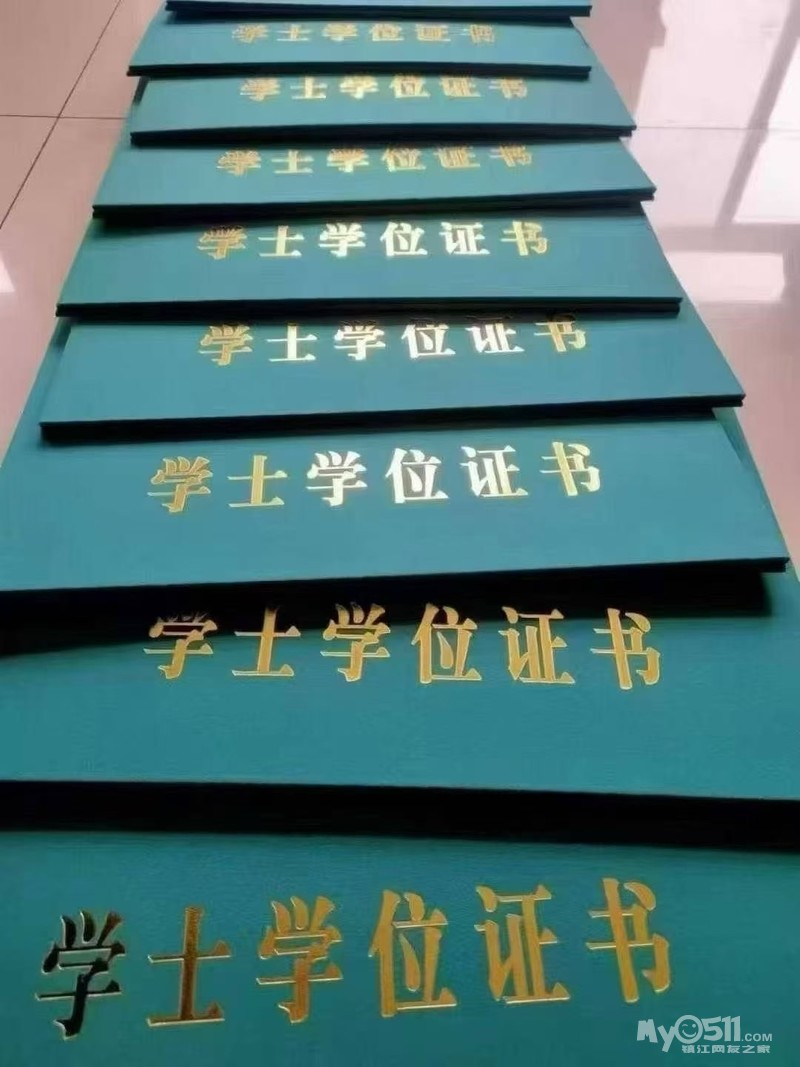 学士学位证书
学士学位证书
学士学位证书
学士学位证书
学士学位证书
学士学位证书
学士学位证书
学士学位证书
学士学位证书
MY0511.COM
镇江网友之家